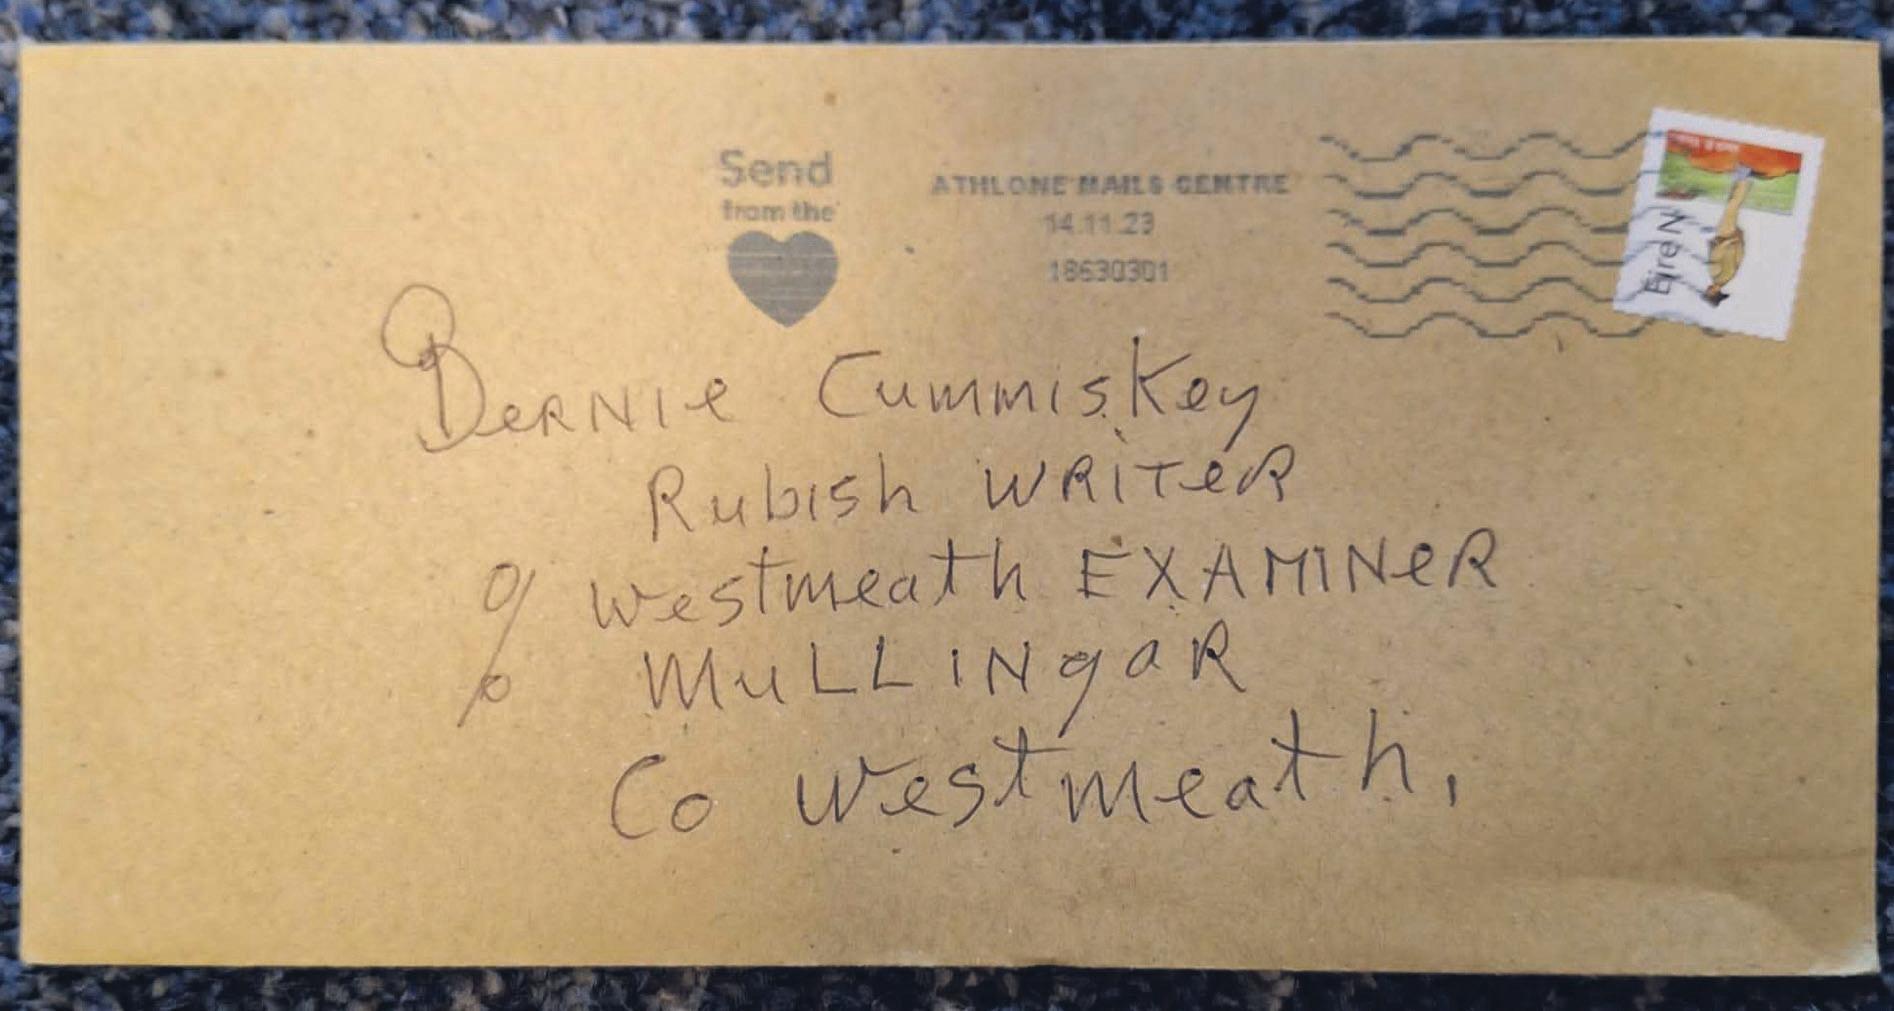 Send
from the
ATHLONE MAILS CENTRE
14.11.23
18630301
Éire N
Bernie Cummiskey
Rubish WRITER
c/o Westmeath EXAMINER
MULLINgaR
Co Westmeath,